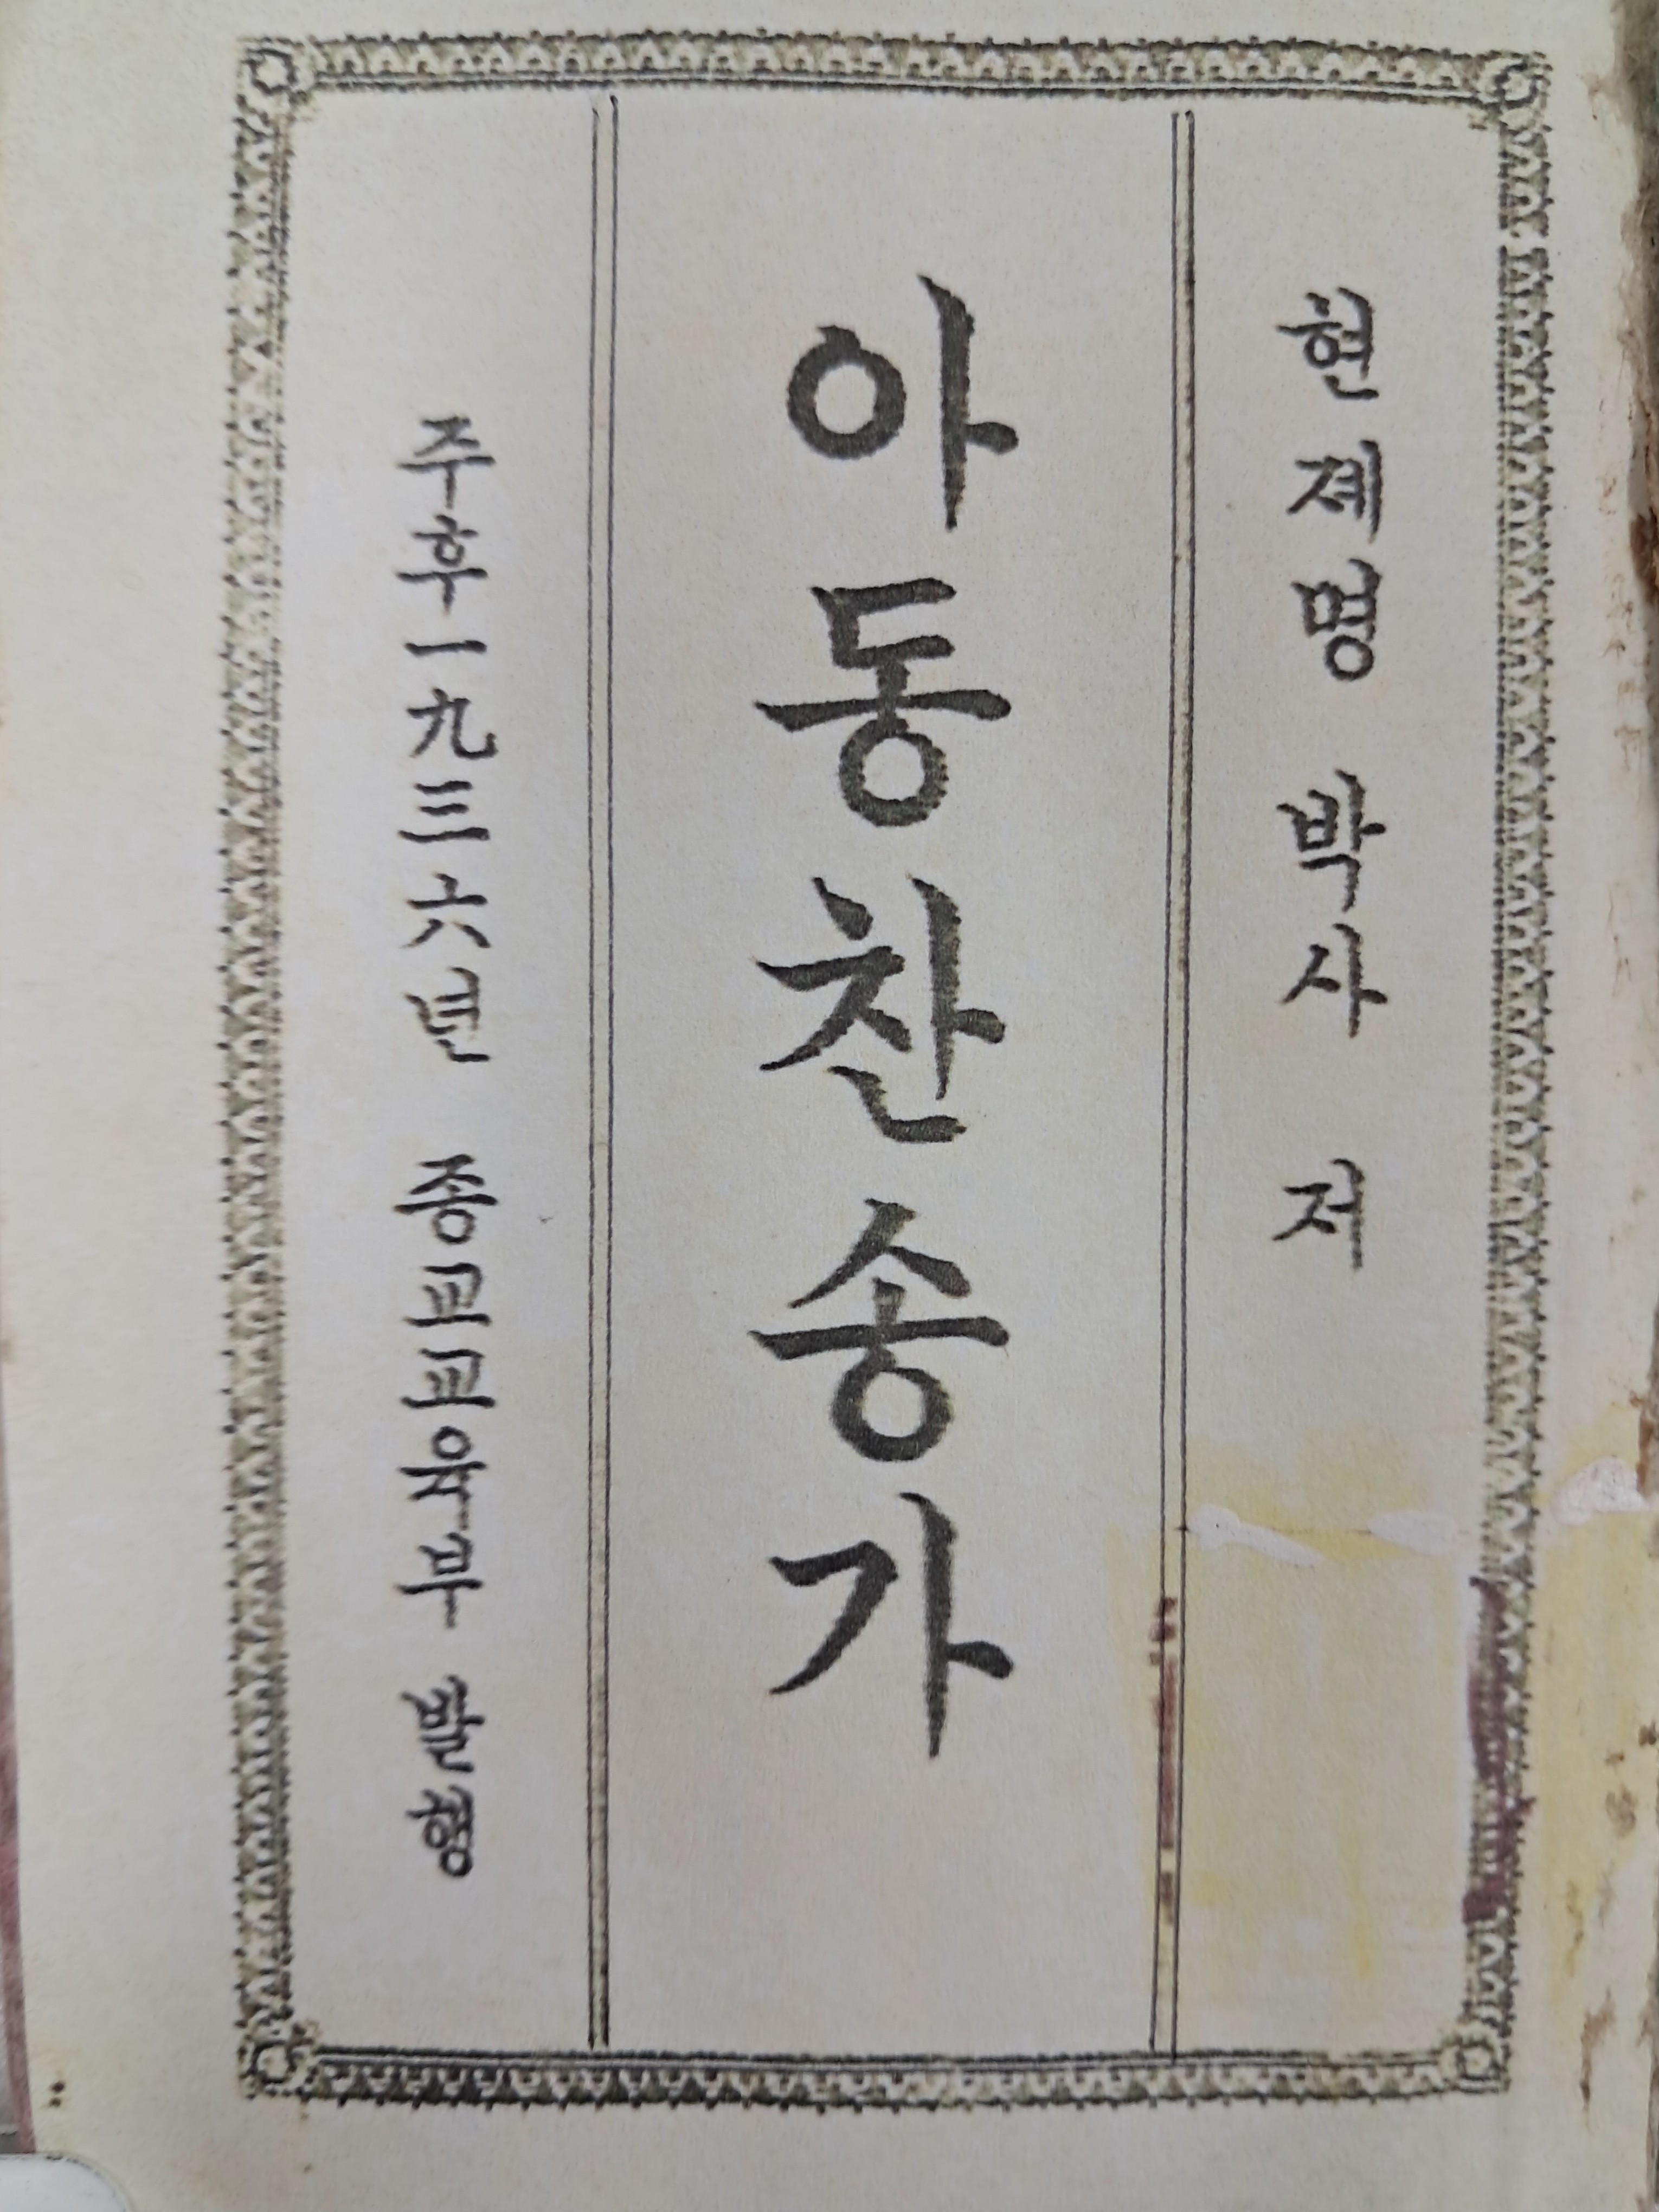 현제명 박사 저
아동찬송가
주후一九三六년 종교교육부 발행